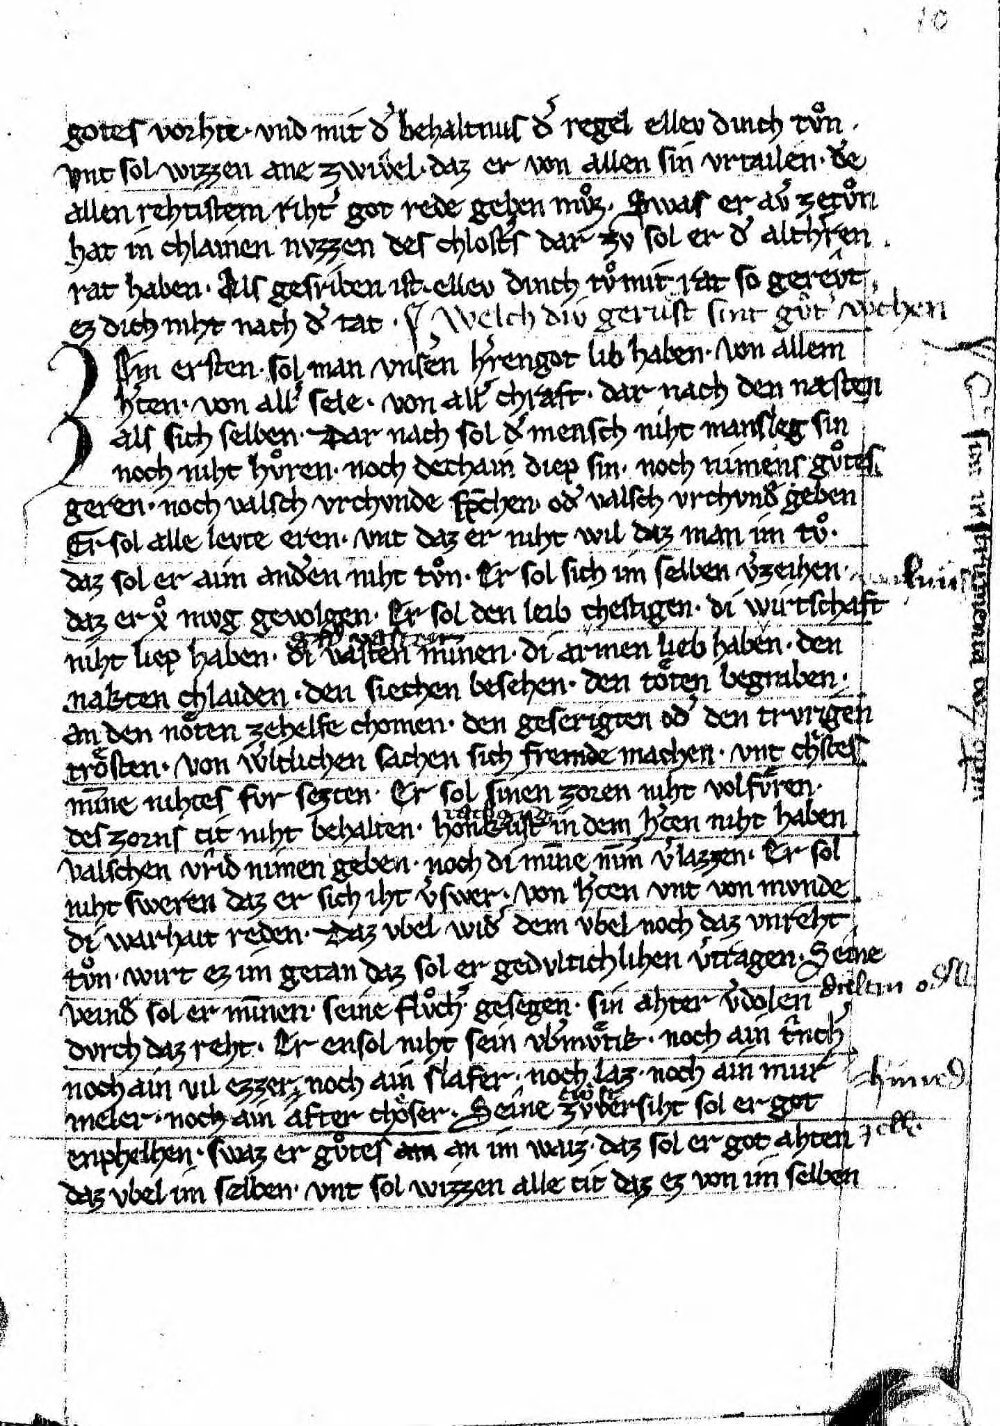 10
gotes vorhte · vnd mit d̾ behaltnus d̾ regel ellev dinch tůn ·
vnt sol wizzen ane zwivel · daz er von allen sin vrtailen · de
allen rehtistem riht̾ got rede geben můz · Swas er av̾ zetůn
hat in chlainen nvzzen des chlost̾s dar zv sol er d̾ altherren
rat haben · Als gesriben ist · ellev dinch tů mit rat so gerevt
ez dich niht nach d̾ tat · Welch div gerust sint gůt̾ wchen
Zim ersten · sol man vnsern h̾rengot lib haben · von allem
h̾cen · von all̾ sele · von all̾ chraft · dar nach den næsten
als sich selben · Dar nach sol d̾ mensch niht mansleg sin
noch niht hůren · noch dechain diep sin · noch nimens gůtes
geren · noch valsch vrchvnde sp̄chen · od̾ valsch vrchvnd̾ geben
Er sol alle levte eren · vnt daz er niht wil daz man im tů ·
daz sol er aim and̾en niht tůn · Er sol sich im selben v̾zeihen ·
daz er mvg gevolgen · Er sol den leib chestigen · di wirtschaft
niht liep haben · di vasten minen · di armen lieb haben · den
nakten chlaiden · den siechen besehen · den toten begraben ·
an den noten zehelfe chomen · den geserigten od̾ den trvrigen
trosten · von w̾ltlichen sachen sich fremde machen · vnt ch̾stes
mīne nihtes fvr sezten · Er sol sinen zoren niht volfvren ·
des zorns tit niht behalten · honkust in dem h̾cen niht haben
valschen vrid nimen geben · noch di mīne nim̄ v̾lazzen · Er sol
niht sweren daz er sich iht v̾swer · von h̾cen vnt von mvnde
di warhait reden · Daz vbel wid̾ dem vbel noch daz vnreht
tůn · wirt ez im getan daz sol er gedvltichlihen v̾tragen · Seine
veind̾ sol er mīnen · seine flůch̾ gesegen · sin ahter v̾dolen
dvrch daz reht · Er ensol niht sein vb̾mvtik · noch ain trinch̾
noch ain vil ezzer · noch ain slafer · noch laz · noch ain mur
meler · noch ain after choser · Seine zův̾ersiht sol er got
enphelhen · swaz er gůtes am an im waiz · daz sol er got ahten
daz vbel im selben · vnt sol wizzen alle tit daz ez von im selben